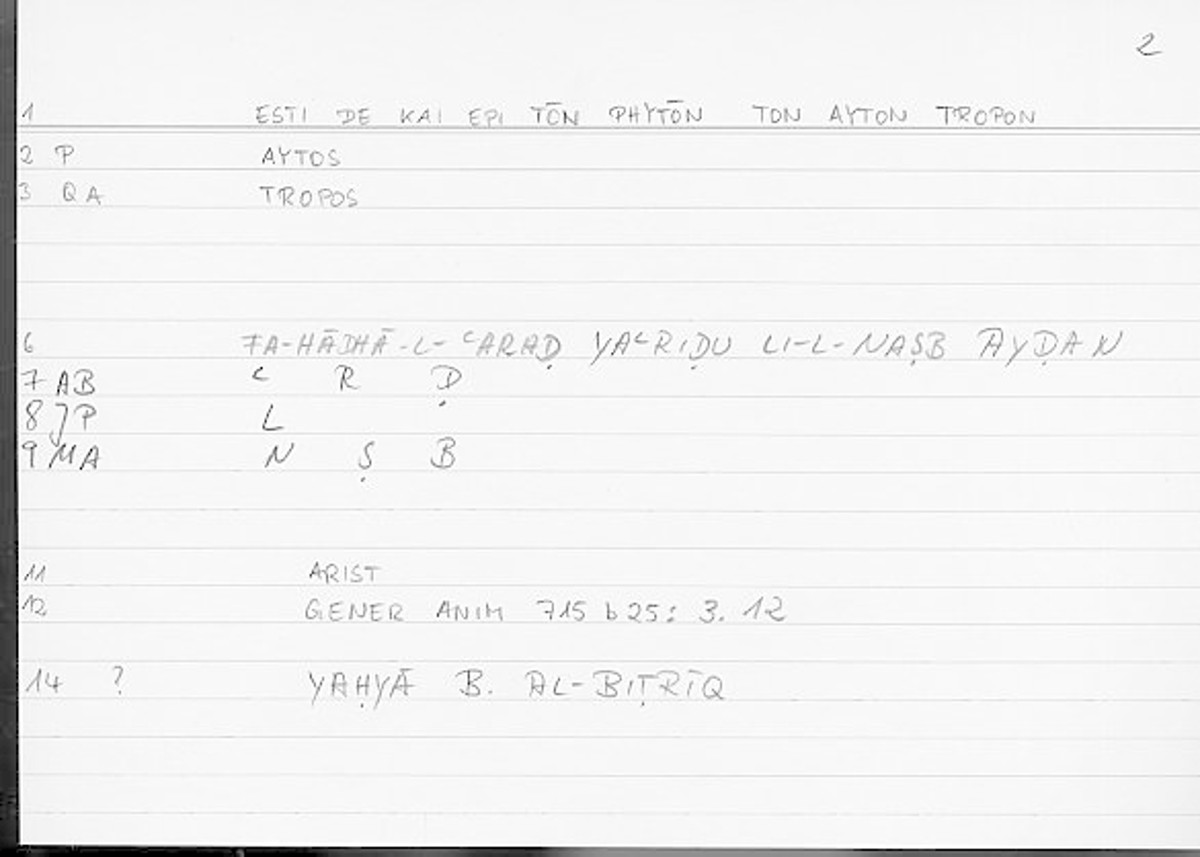 2
1 ESTI DE KAI EPI TŌN PHYTŌN TON AYTON TROPON
2 P AYTOS
3 QA TROPOS
6 FA-HĀDHĀ-L-ʿARAḌ YAʿRIḌU LI-L-NAṢB AYḌAN
7 AB ʿ R Ḍ
8 JP L
9 MA N Ṣ B
11 ARIST
12 GENER ANIM 715 b25: 3.12
14 ? YAḤYĀ B. AL-BIṬRĪQ